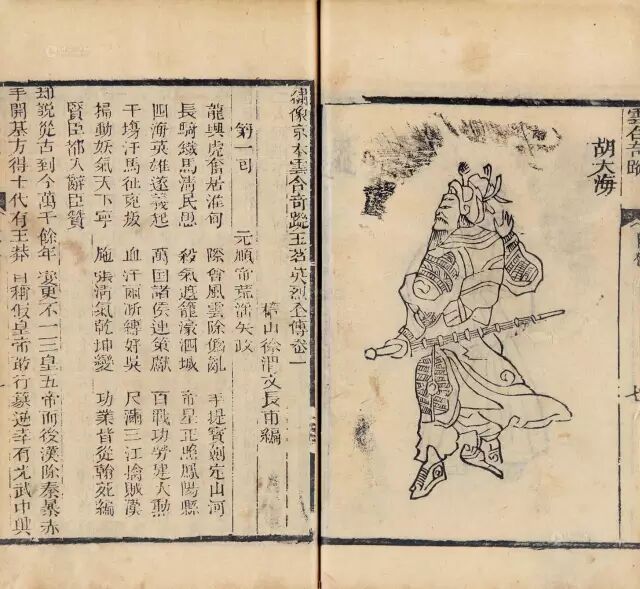 雲合奇蹤
胡大海
七
繡像京本雲合奇蹤玉茗英烈全傳卷一
稽山徐渭文長甫編
第一回 元順帝荒淫失政
龍興虎奮居淮甸 際會風雲除僭亂 手提寶劍定山河
長騎鐵馬清民患 殺氣遮籠濠泗城 帝星正照鳳陽縣
四海英雄遂義起 萬国諸侯連策獻 百戰功勞建大勳
干塲汗馬征 血汗 縛好吳 尺 三江擒賊漢
動妖氣天下寧 施張清氣乾坤變 功業皆從翰苑編
賢臣都入辭臣贊
却說從古到今萬千餘年變更不一三皇五帝而後漢除秦暴赤
手開基方得十代有王莽自稱假皇帝敢行篡逆幸有光武中興